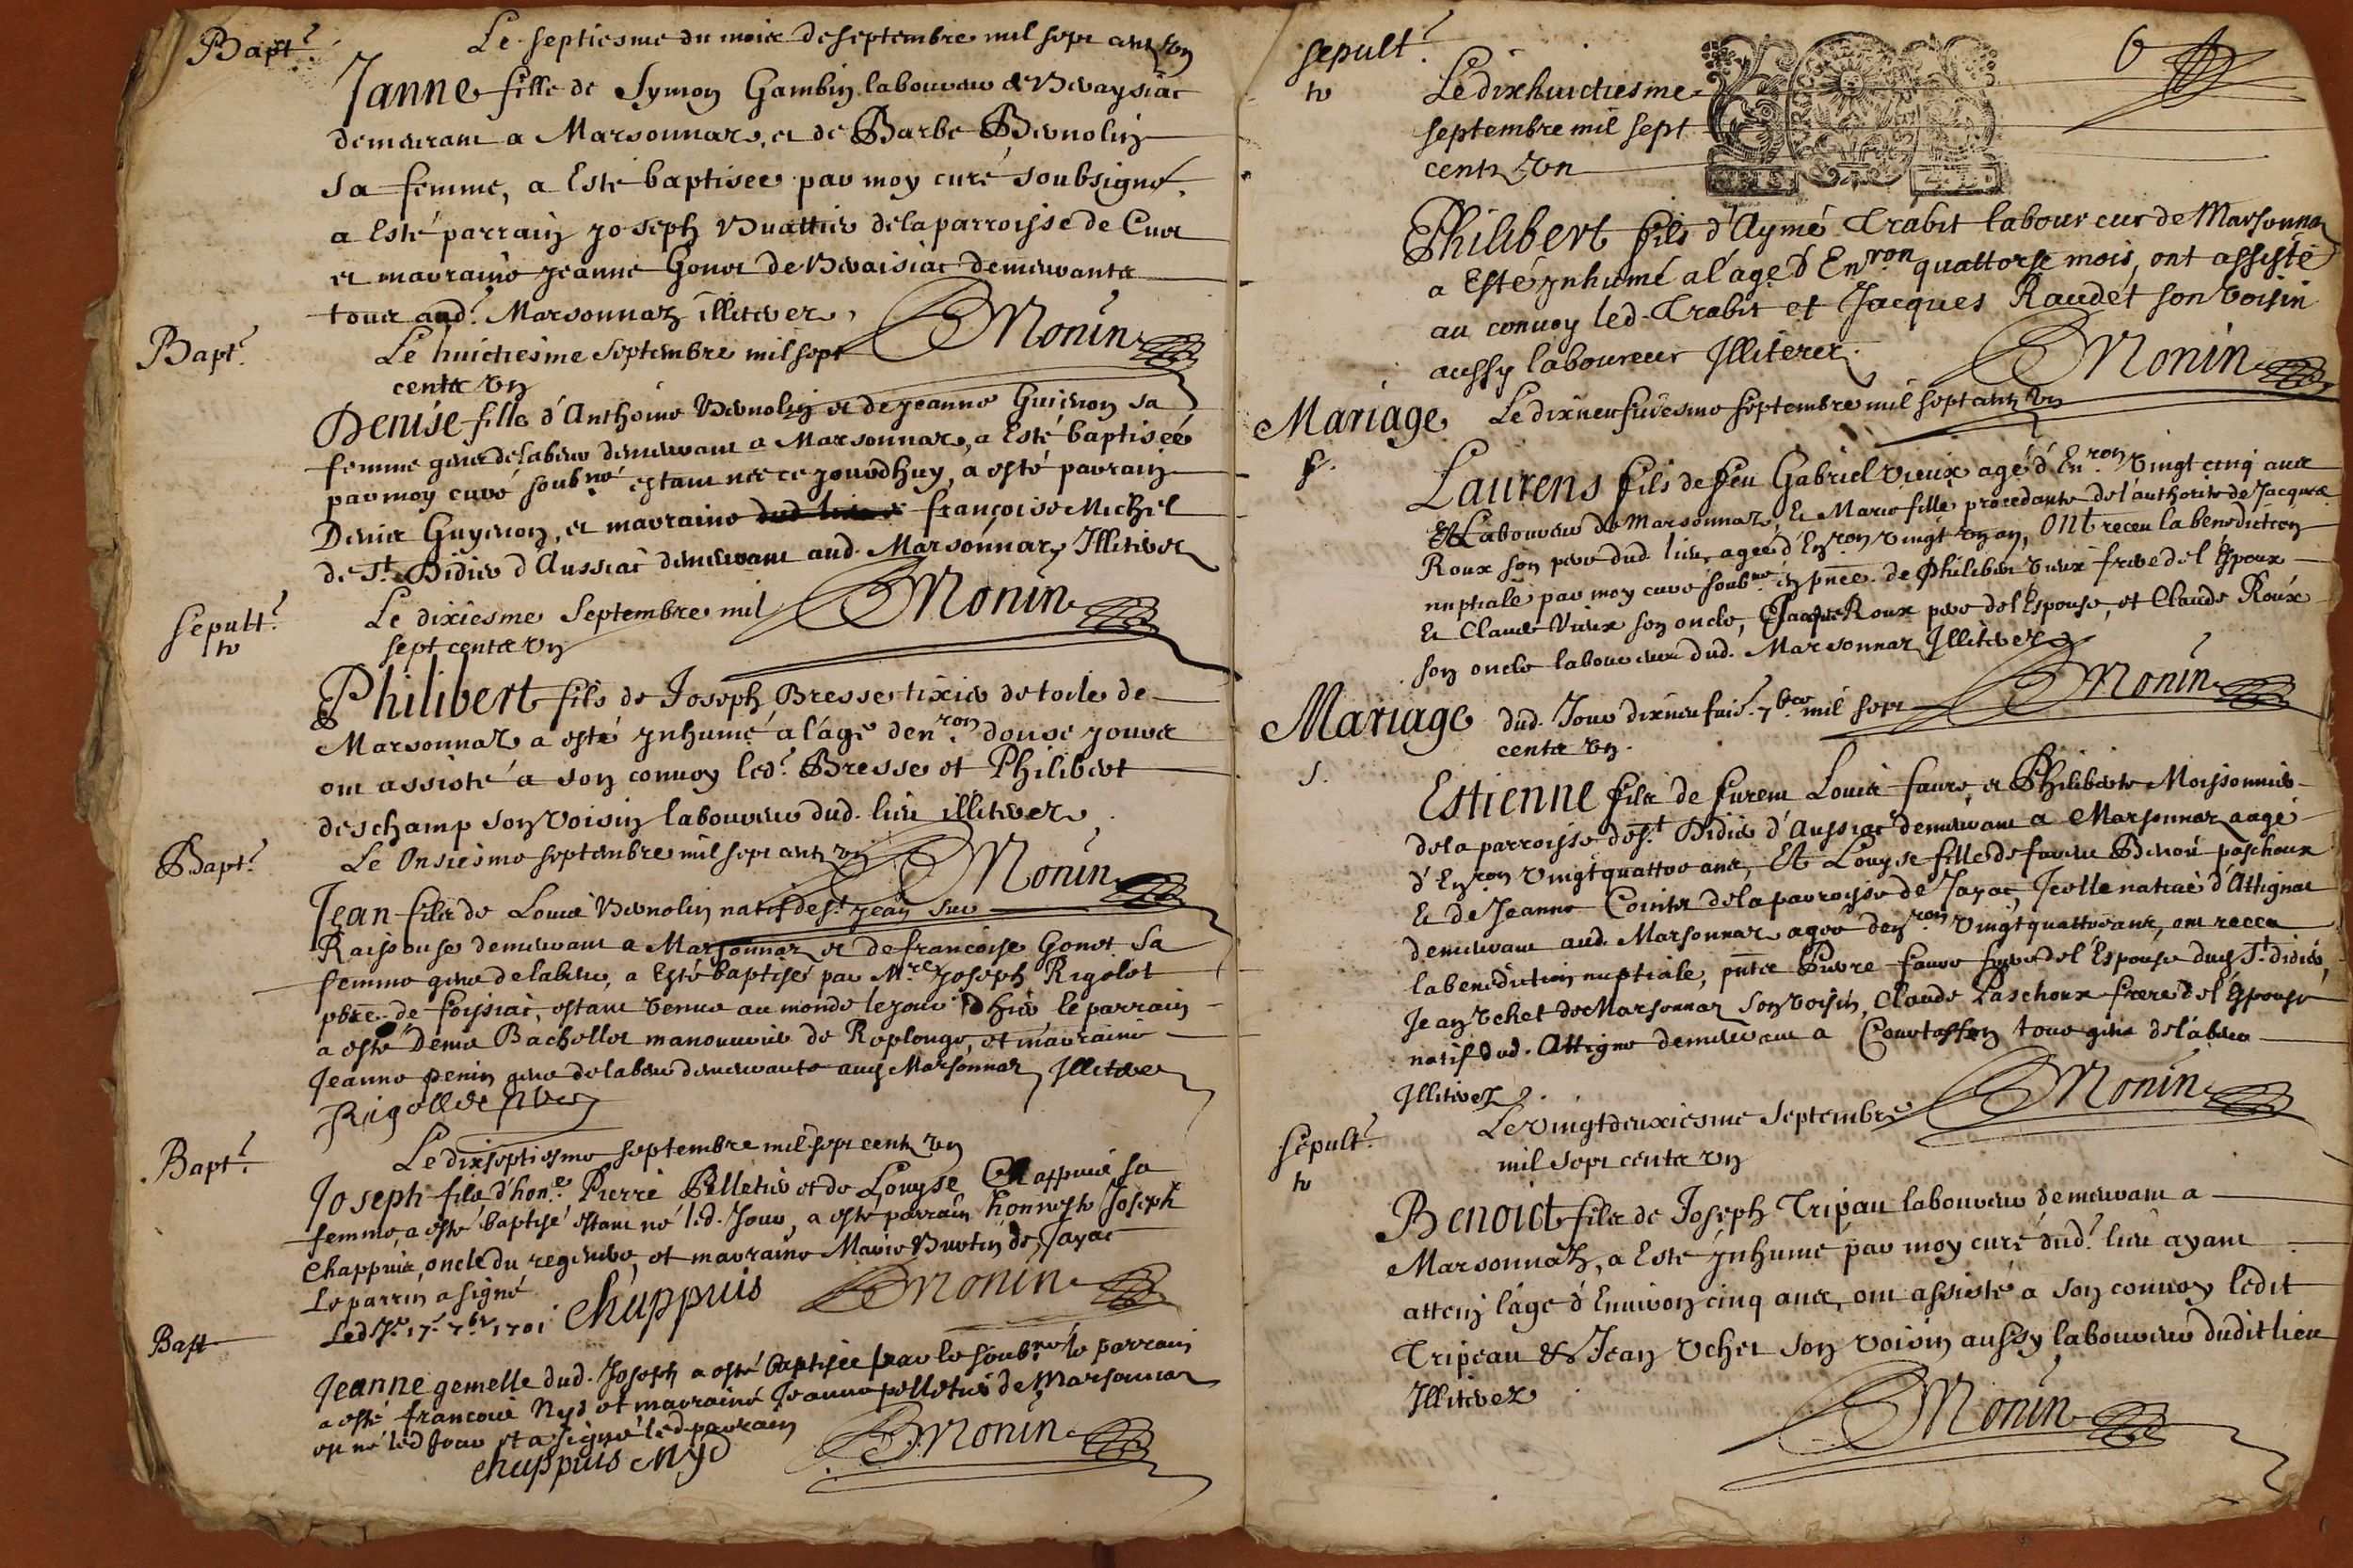 Bapt.e
Le septiesme du mois de septembre mil sept cent un
Janne fille de Symon Gambin laboureur de
demeurant a Marsonnas, et de Barbe Benolin
sa femme, a Esté baptisée par moy curé soubsigné.
a Esté parrain Joseph Buattier de la parroisse de Cuet
et marraine jeanne Gonot de demeurante
tous aud.t Marsonnaz illiterez,
Monin
Bapt.e
Le huictiesme septembre mil sept
cents un
Denise fille d'Anthoine Benolin et de jeanne Guieron sa
femme gens de labeur demeurant a Marsonnaz, a Esté baptiséé
par moy curé soub.né estant née ce jourdhuy, a esté parrain
Denis Guyeron, et marraine françoise Michel
de St Didier d'Aussiac demeurant aud. Marsonnaz Illiterez
Monin
sepult.e
tr
Le dixiesme Septembre mil
sept cents un
Philibert fils de Joseph Bresse tixier de toile de
Marsonnaz a esté ynhumé a l'âge den.ron douse jours
ont assisté a son convoy led.t Bresse et Philibert
deschamp son voisin laboureur dud. lieu illiterez
Monin
Bapt.e
Le Onsiesme septembre mil sept cents un
Jean fils de Louis Benolin natif de St jean sur
Raisouse demeurant a Marsonnaz et de francoise Gonot Sa
femme gens de labeur, a Esté baptisé par Mre Joseph Rigolot
pbre de foissiac, estant venu au monde le jour d'hier le parrain
a esté Denis Bachellet manouvrier de Replonge, et marraine
Jeanne penin gens de labeur demeurante aud Marsonnaz Illiterez
Monin
Bapt.e
Le dixseptiesme septembre mil sept cents un
Joseph fils d'hon.e Pierre Pelletier et de Louyse Chappuis sa
femme, a esté baptisé estant né led. Jour, a esté parrain honneste Joseph
Chappuis, oncle du regeneré, et marraine Marie Buretin de Jayac
Le parrin a signé
Led. Jr. 17.e 7br 1701
chappuis
Monin
Bapt
Jeanne gemelle dud. Joseph a esté baptisée par le soub.né le parrain
a esté francois Nyd et marraine Jeanne pelletier de Marsonnaz
led jour et a signé led parrain
chappuis Nyd
Monin
sepult.e
tr
6
Le dixhuictiesme
septembre mil sept
cents un
Philibert fils d'Aymé Trabit laboureur de Marsonnaz
a Esté ynhumé a l'age d'En.ron quattorse mois, ont assisté
au convoy led. Trabit et Jacques Raudet son voisin
aussy laboureur Illiterez.
Monin
Mariage
Le dixneufviesme septembre mil sept cents un
Laurens fils de feu Gabriel Vieux agé d'En.ron vingt cinq ans
et Laboureur de Marsonnaz, Et Marie fille procedante de l'authorité de Jacques
Roux son pere dud. lieu, ageé d'En.ron vingt un an, ont receu la benediction
nuptiale par moy curé soub.né en pnce. de Philibert vieux frere de l'Epoux
Et Claude Vieux son oncle, Jacques Roux pere de l'Espouse, et Claude Roux
son oncle laboureurs dud. Marsonnaz Illiterez
Monin
Mariage
s.
dud. Jour dixneufuie. 7bre mil sept
cents un.
Estienne fils de furent Louis faure, et Philiberte Moissonnier
de la parroisse de St Didier d'Aussiac demeurant a Marsonnaz aagé
d'En.ron vingt quattre ans, Et Louyse fille de Benoit paschoux
Et de Jeanne Cointet de la parroisse de Jayac, Icelle natiue d'Attignat
demeurant aud. Marsonnaz agee den.ron vingt quattre ans, ont receu
la benediction nuptiale, pnts Pierre faure frere de l'Espoux dud St didier,
Jean Vchet de Marsonnaz son voisin, Claude Paschoux frere de l'Espouse
natif dud. Attigna demeurant a tous gens de labeur
Illiterez.
Monin
Sepult.e
tr
Le vingtdeuxiesme Septembre
mil sept cents un
Benoict fils de Joseph Tripau laboureur demeurant a
Marsonnaz, a Esté ynhumé par moy curé dud.t lieu ayant
attein l'age d'Enuiron cinq ans, ont assisté a son convoy ledit
Tripeau & Jean Vchet son voisin aussy laboureur dudit lieu
Illiterez
Monin